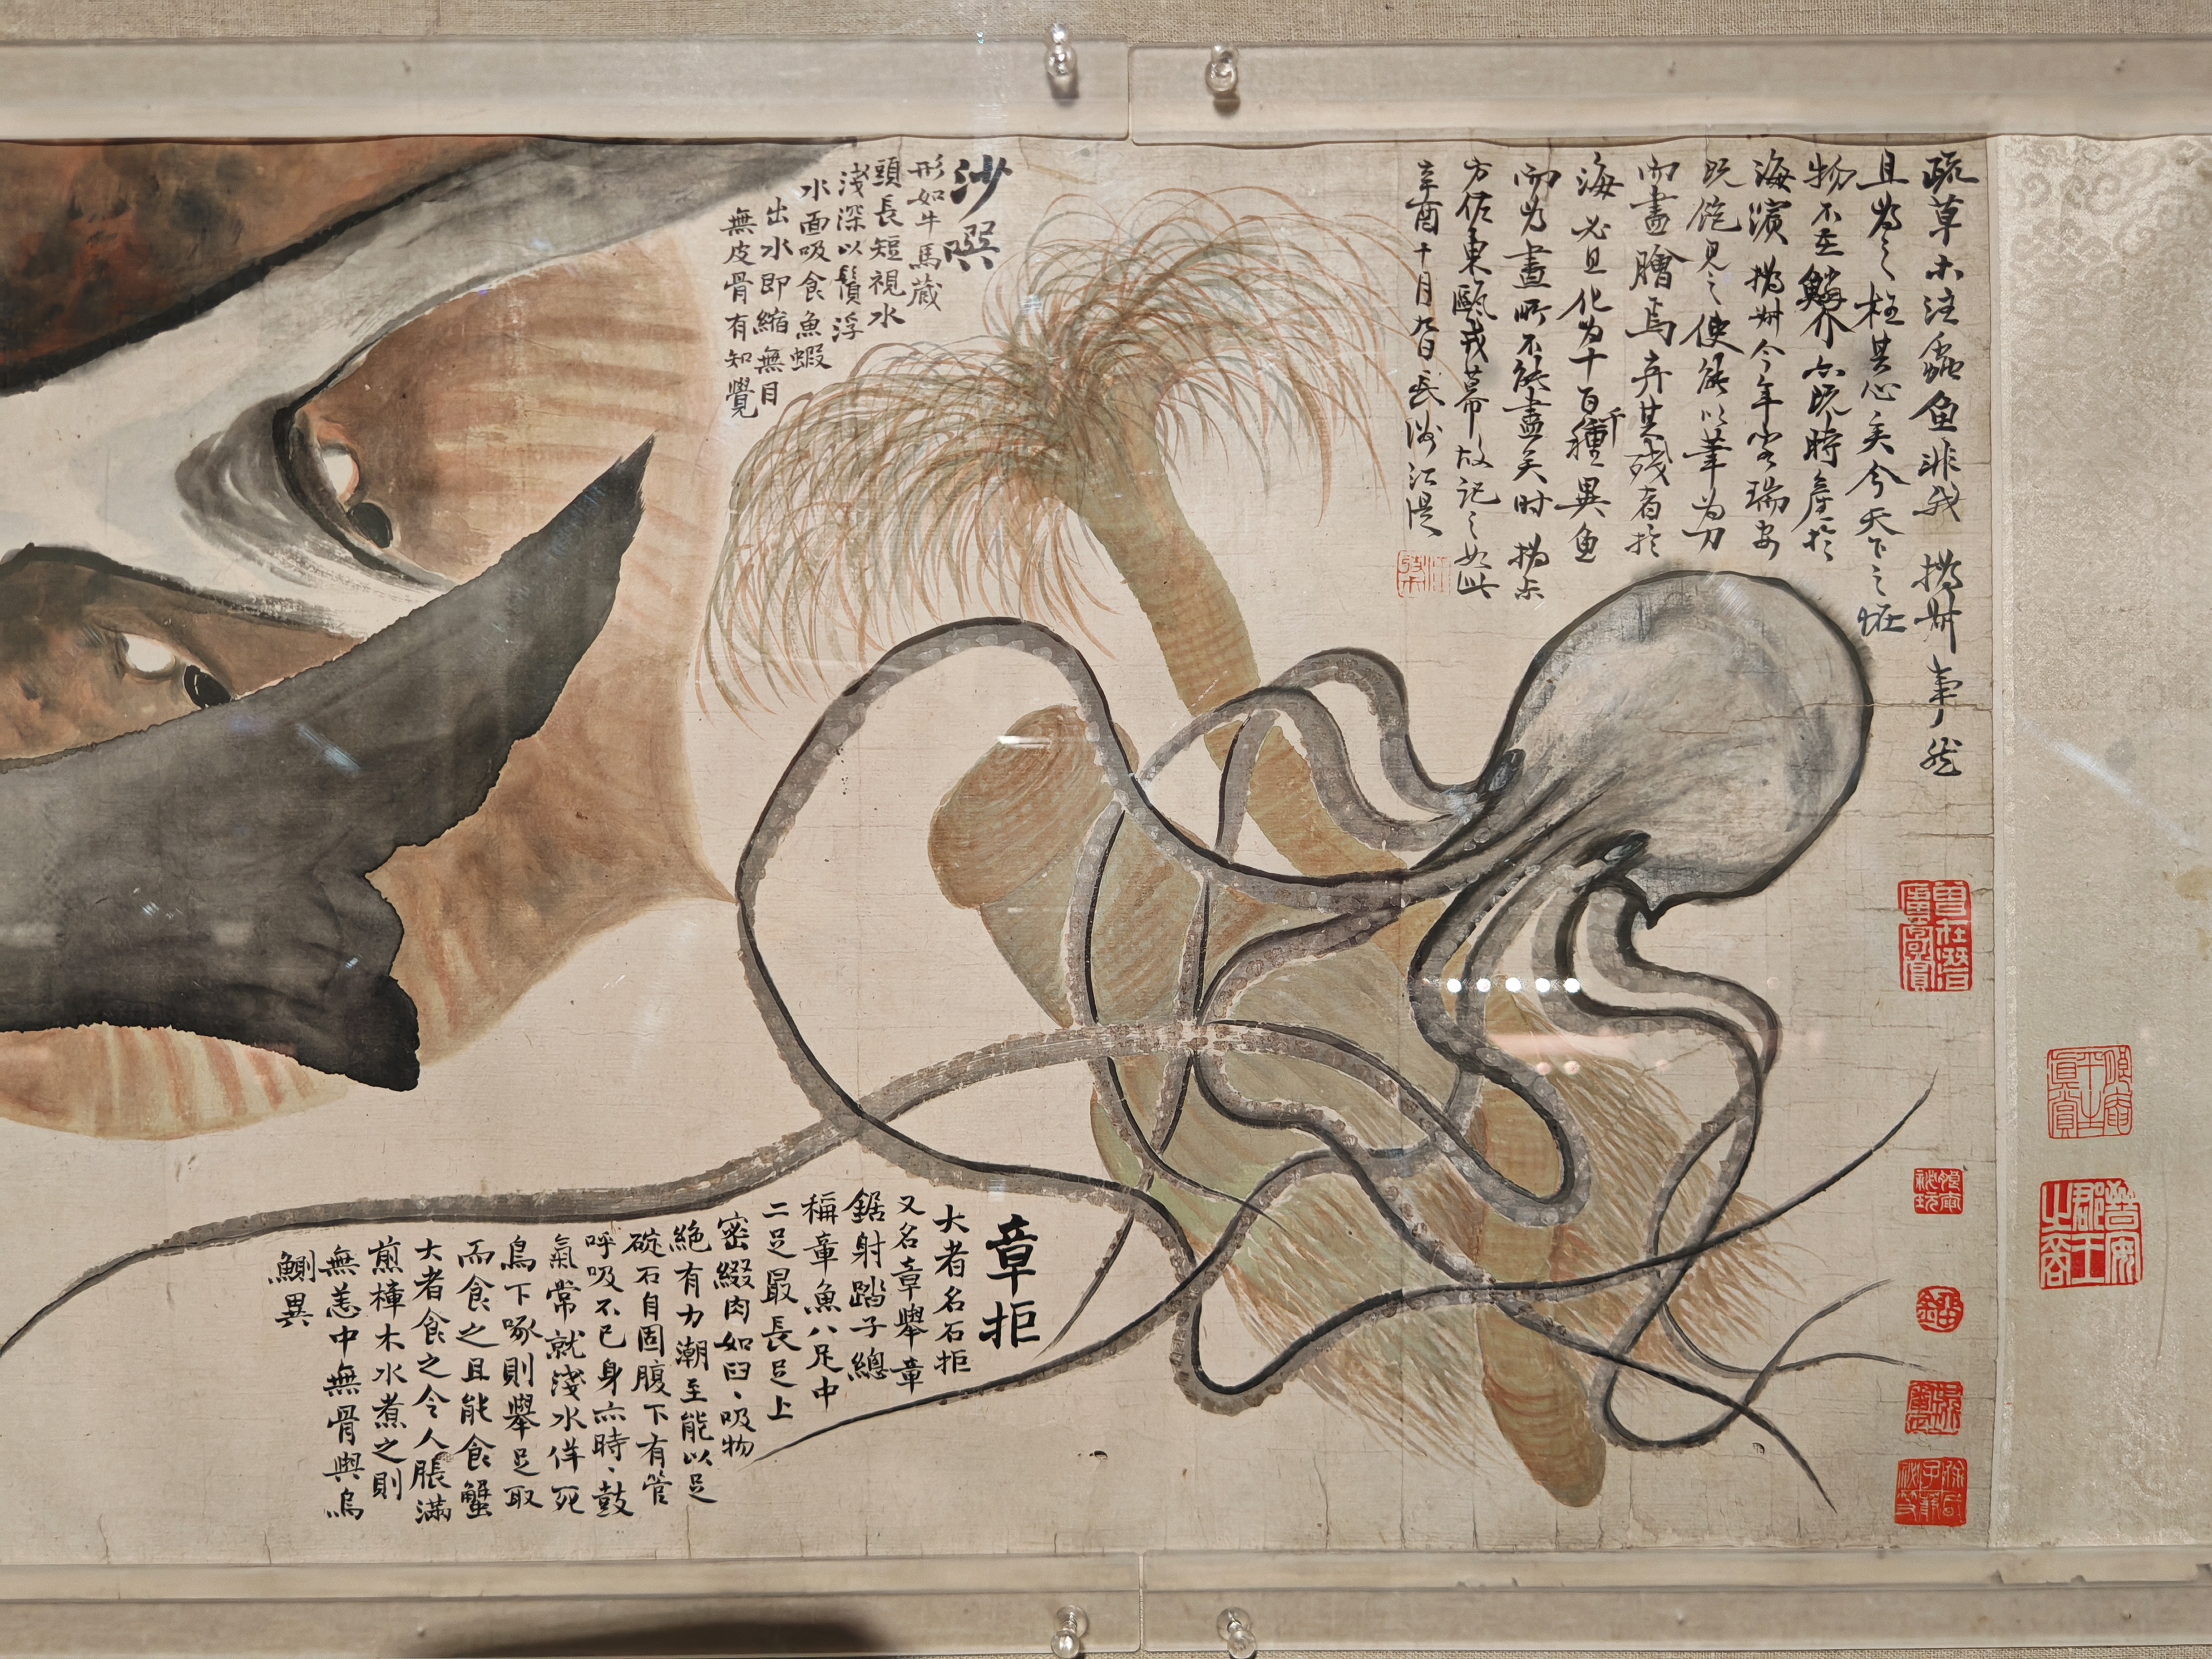 疏草木注蟲魚非我撝叔事然
且為之枉其心矣今天下之怪
物不在鱗介而既時產於
海濱撝叔今年客瑞安
既飽見之使能以筆為刀
而畫膾焉弃其殘者於
海必且化為十百千種異魚
而為畫所不能盡矣时撝尗
方佐東甌戎幕故記之如此
辛酉十月九日長洲江湜
沙噀
形如牛馬蔵
頭長短視水
淺深以鬚浮
水面吸食魚蝦
出水即縮無目
無皮骨有知覺
章拒
大者名石拒
又名章舉章
鋸射踏子總
稱章魚八足中
二足最長足上
密綴肉如臼、吸物
絕有力潮至能以足
碇石自固腹下有管
呼吸不已身亦時、鼓
氣常就淺水佯死
烏下啄則舉足取
而食之且能食蟹
大者食之令人脹滿
煎樟木水煮之則
無恙中無骨與烏
鰂異